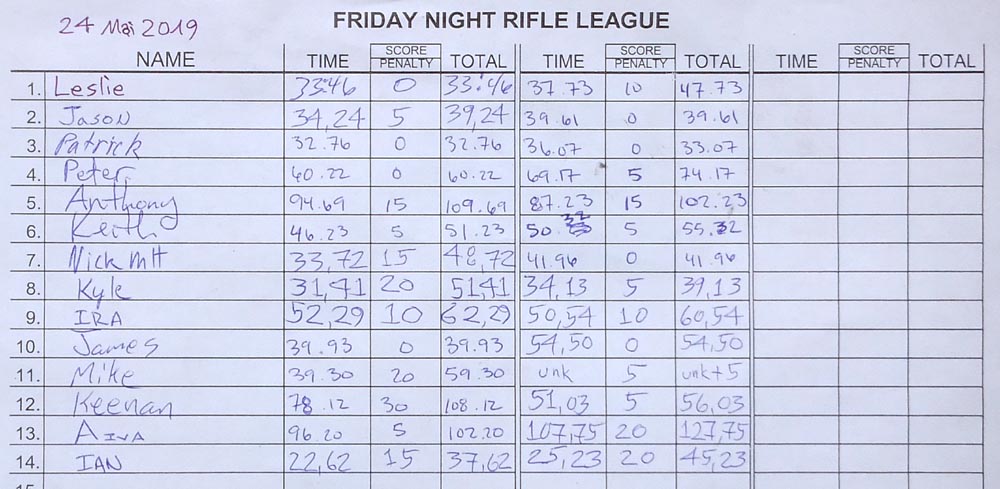 FRIDAY NIGHT RIFLE LEAGUE
24 Mai 2019
NAME TIME SCORE PENALTY TOTAL TIME SCORE PENALTY TOTAL TIME SCORE PENALTY TOTAL
1. Leslie 33:46 0 33:46 37.73 10 47.73
2. Jason 34,24 5 39,24 39.61 0 39.61
3. Patrick 32.76 0 32.76 36.07 0 33.07
4. Peter. 60.22 0 60.22 69.17 5 74.17
5. Anthony 94.69 15 109.69 87.23 15 102.23
6. Keith 46.23 5 51.23 50.32 5 55.32
7. Nick MH 33,72 15 48,72 41.96 0 41.96
8. Kyle 31,41 20 51,41 34,13 5 39,13
9. IRA 52,29 10 62,29 50,54 10 60,54
10. James 39.93 0 39.93 54,50 0 54,50
11. Mike 39.30 20 59.30 unk 5 unk+5
12. Keenan 78.12 30 108.12 51,03 5 56,03
13. 96.20 5 102.20 107,75 20 127,75
14. IAN 22,62 15 37,62 25,23 20 45,23